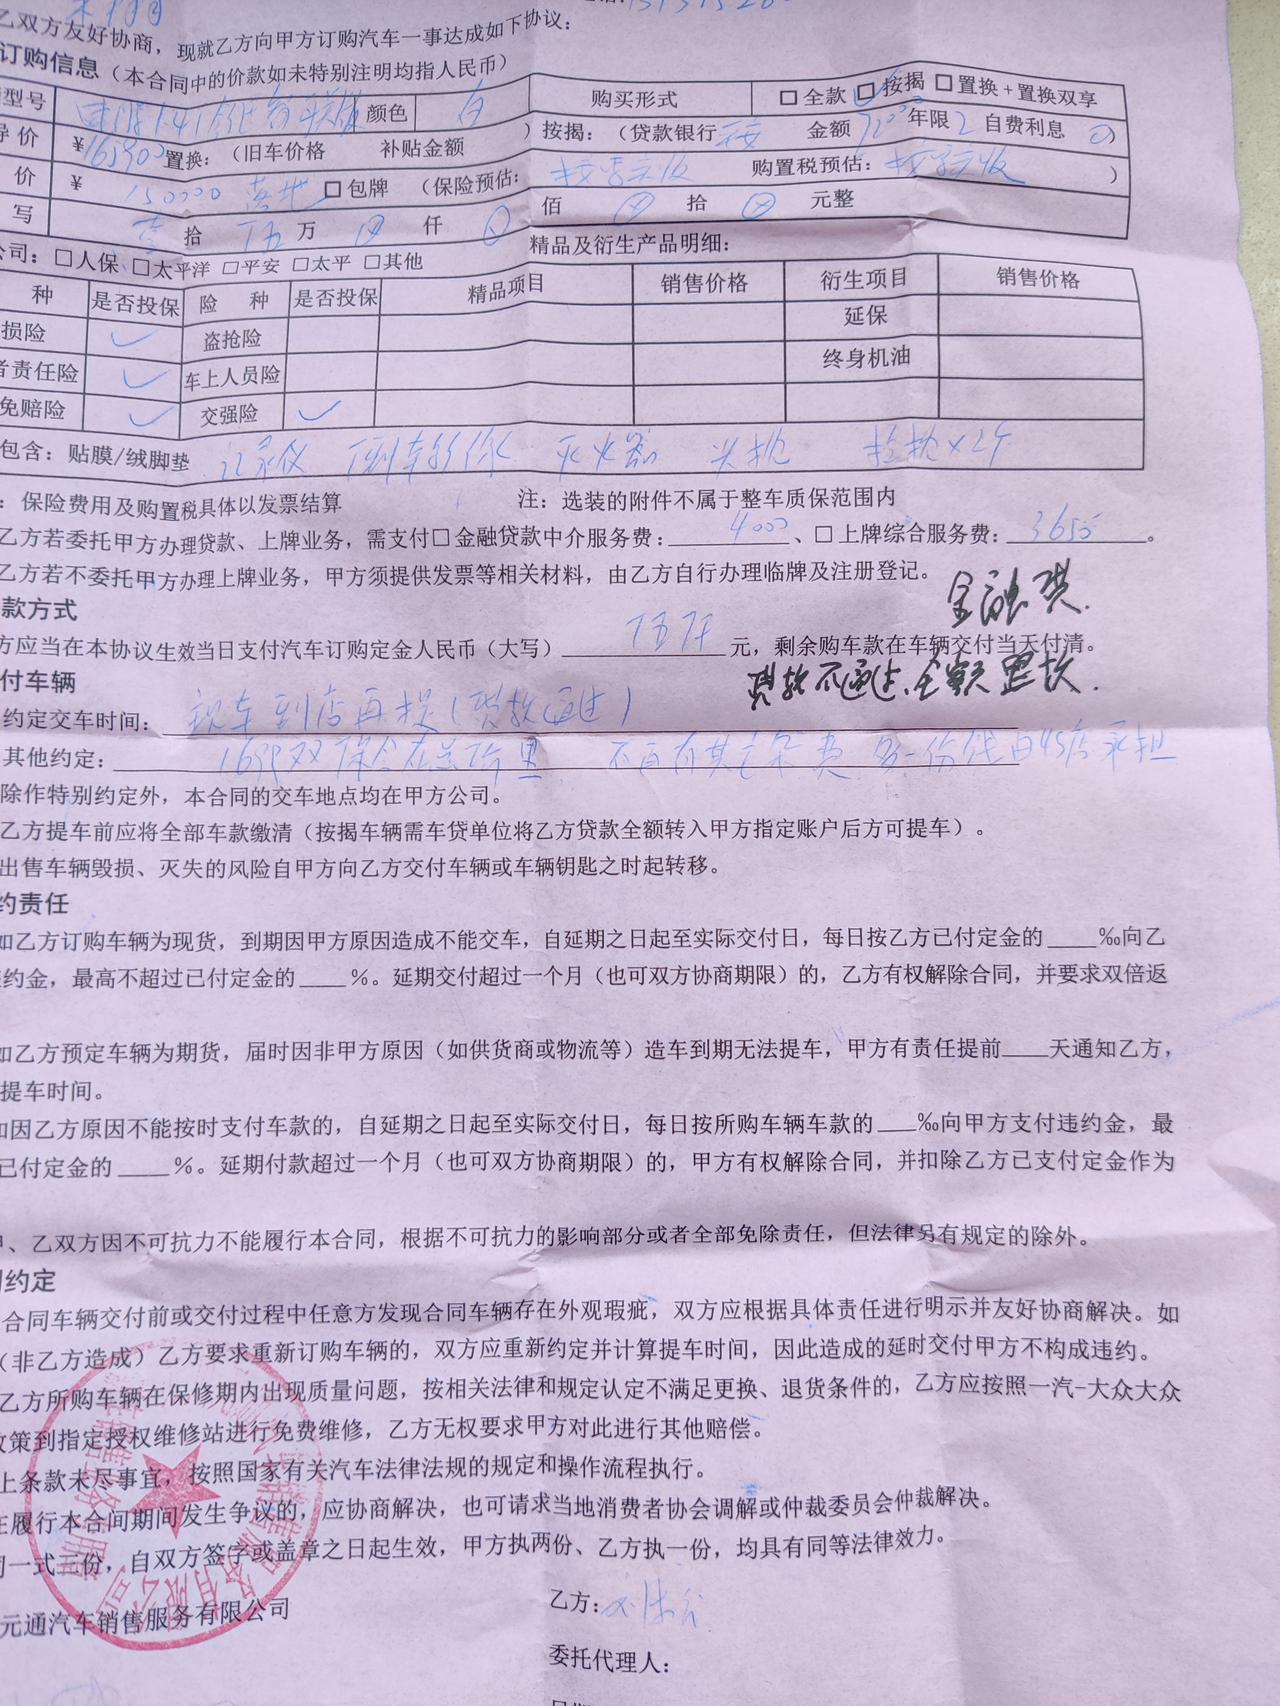 乙双方友好协商，现就乙方向甲方订购汽车一事达成如下协议：
订购信息（本合同中的价款如未特别注明均指人民币）
型号 颜色 白 购买形式 □全款 □按揭 □置换+置换双享
导价 ¥165900 置换：（旧车价格 补贴金额 ）按揭：（贷款银行 金额 年限 2 自费利息 0）
价 ¥ 150000 □包牌 （保险预估： 按实际 购置税预估： 按实际 ）
写 壹 拾 伍 万 仟 佰 拾 元整
公司：□人保、□太平洋 □平安 □太平 □其他 精品及衍生产品明细：
种 是否投保 险 种 是否投保 精品项目 销售价格 衍生项目 销售价格
损险 ✓ 盗抢险 延保
者责任险 ✓ 车上人员险 终身机油
免赔险 ✓ 交强险 ✓
包含：贴膜/绒脚垫 记录仪 倒车影像 灭火器 头枕
：保险费用及购置税具体以发票结算 注：选装的附件不属于整车质保范围内
乙方若委托甲方办理贷款、上牌业务，需支付□金融贷款中介服务费：4000、□上牌综合服务费：3655。
乙方若不委托甲方办理上牌业务，甲方须提供发票等相关材料，由乙方自行办理临牌及注册登记。
款方式
方应当在本协议生效当日支付汽车订购定金人民币（大写）伍仟元，剩余购车款在车辆交付当天付清。
贷款不通过、全额退款.
付车辆
约定交车时间：现车到店再提（贷款通过）
其他约定： 不再有其它杂费 多一份钱由4S店承担
除作特别约定外，本合同的交车地点均在甲方公司。
乙方提车前应将全部车款缴清（按揭车辆需车贷单位将乙方贷款全额转入甲方指定账户后方可提车）。
出售车辆毁损、灭失的风险自甲方向乙方交付车辆或车辆钥匙之时起转移。
约责任
如乙方订购车辆为现货，到期因甲方原因造成不能交车，自延期之日起至实际交付日，每日按乙方已付定金的____‰向乙
约金，最高不超过已付定金的____%。延期交付超过一个月（也可双方协商期限）的，乙方有权解除合同，并要求双倍返
如乙方预定车辆为期货，届时因非甲方原因（如供货商或物流等）造车到期无法提车，甲方有责任提前____天通知乙方，
提车时间。
如因乙方原因不能按时支付车款的，自延期之日起至实际交付日，每日按所购车辆车款的____‰向甲方支付违约金，最
已付定金的____%。延期付款超过一个月（也可双方协商期限）的，甲方有权解除合同，并扣除乙方已支付定金作为
甲、乙双方因不可抗力不能履行本合同，根据不可抗力的影响部分或者全部免除责任，但法律另有规定的除外。
别约定
合同车辆交付前或交付过程中任意方发现合同车辆存在外观瑕疵，双方应根据具体责任进行明示并友好协商解决。如
（非乙方造成）乙方要求重新订购车辆的，双方应重新约定并计算提车时间，因此造成的延时交付甲方不构成违约。
乙方所购车辆在保修期内出现质量问题，按相关法律和规定认定不满足更换、退货条件的，乙方应按照一汽-大众大众
政策到指定授权维修站进行免费维修，乙方无权要求甲方对此进行其他赔偿。
上条款未尽事宜，按照国家有关汽车法律法规的规定和操作流程执行。
在履行本合同期间发生争议的，应协商解决，也可请求当地消费者协会调解或仲裁委员会仲裁解决。
同一式三份，自双方签字或盖章之日起生效，甲方执两份、乙方执一份，均具有同等法律效力。
元通汽车销售服务有限公司
乙方：
委托代理人：